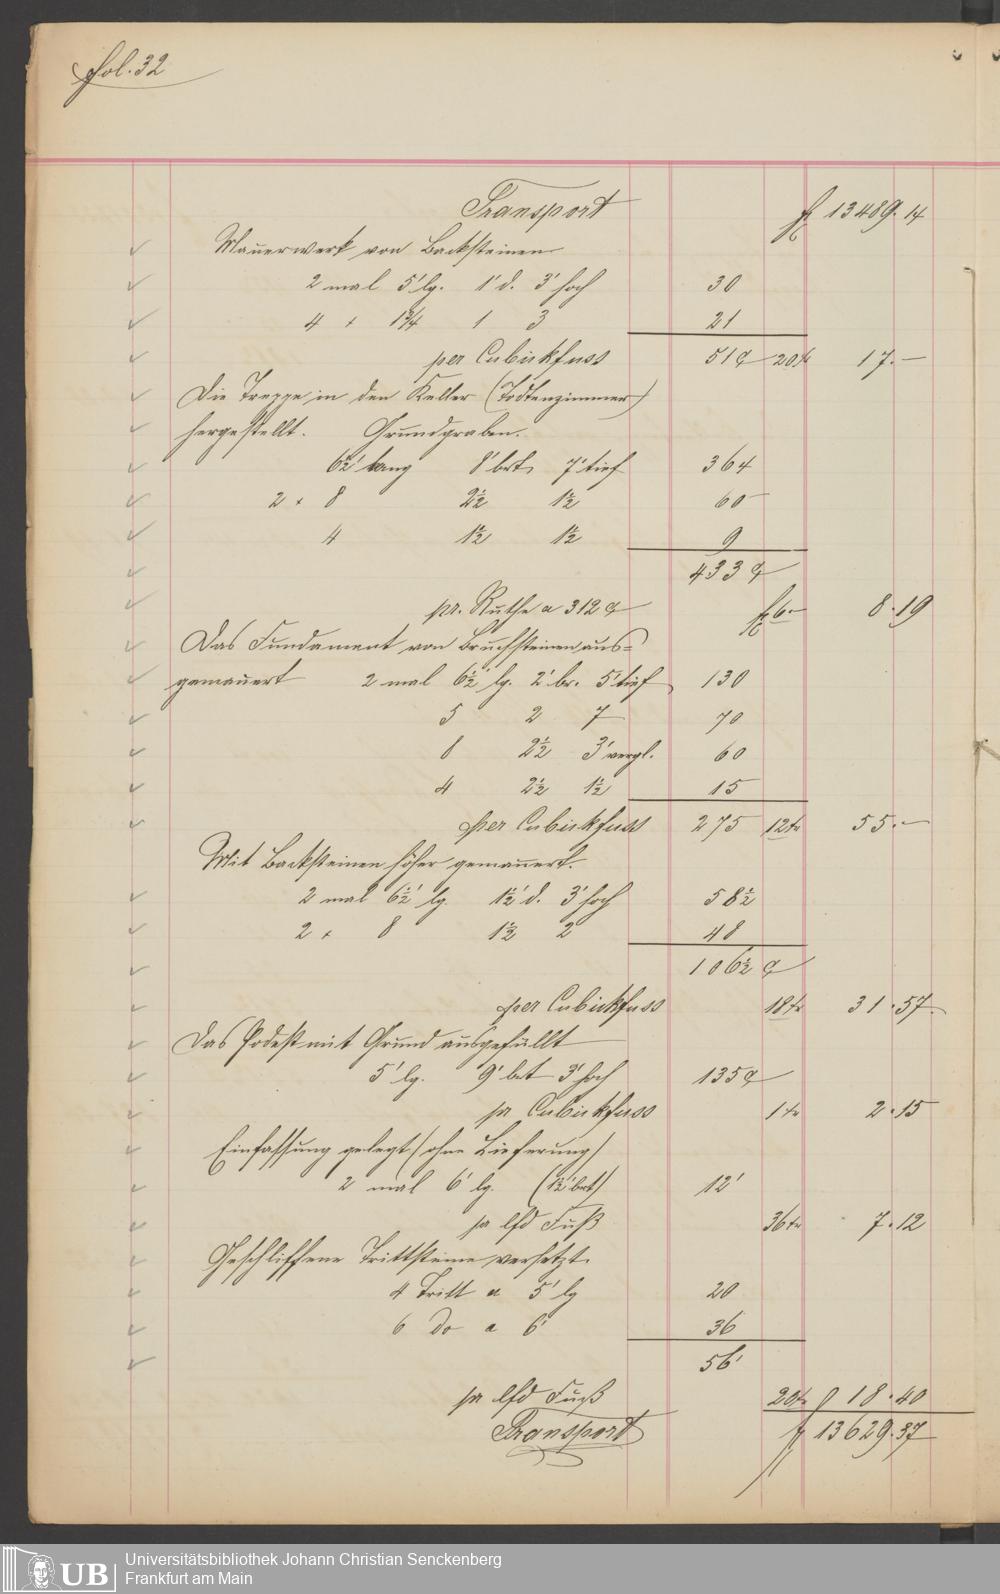 fol. 32
Transport fl 13489. 14
Mauerwerk von Backsteinen
2 mal 5' lg. 1' d. 3' hoch 30
4 × 1¾ 1 3 21
per Cubickfuss 51 20 kr 17. –
Die Treppe in den Keller (Todtenzimmer)
hergestellt. Grundgraben.
6½' lang 8' brt 7' tief 364
2 × 8 2½ 1½ 60
4 1½ 1½ 9
433
pr. Ruthe a 312 fl 6.– 8. 19
Das Fundament von Bruchsteinen aus=
gemauert 2 mal 6½' lg. 2' br. 5' tief 130
5 2 7 70
8 2½ 3' vergl. 60
4 2½ 1½ 15
per Cubickfuss 275 12 kr 55. –
Mit Backsteinen höher gemauert.
2 mal 6½' lg. 1½' d. 3' hoch 58½
2 × 8 1½ 2 48
106½
per Cubickfuss 18 kr 31. 57.
Das Podest mit Grund ausgefüllt
5' lg. 9' brt 3' hoch 135
pr Cubickfuss 1 kr 2. 15
Einfassung gelegt (ohne Lieferung)
2 mal 6' lg. (1½' brt) 12'
pr lfd Fuß 36 kr 7. 12
Geschliffene Trittsteine versetzt.
4 Tritt a 5' lg 20
6 do a 6' 36
56'
pr lfd Fuß 20 kr 18. 40
Transport fl 13629. 37
UB
Universitätsbibliothek Johann Christian Senckenberg
Frankfurt am Main